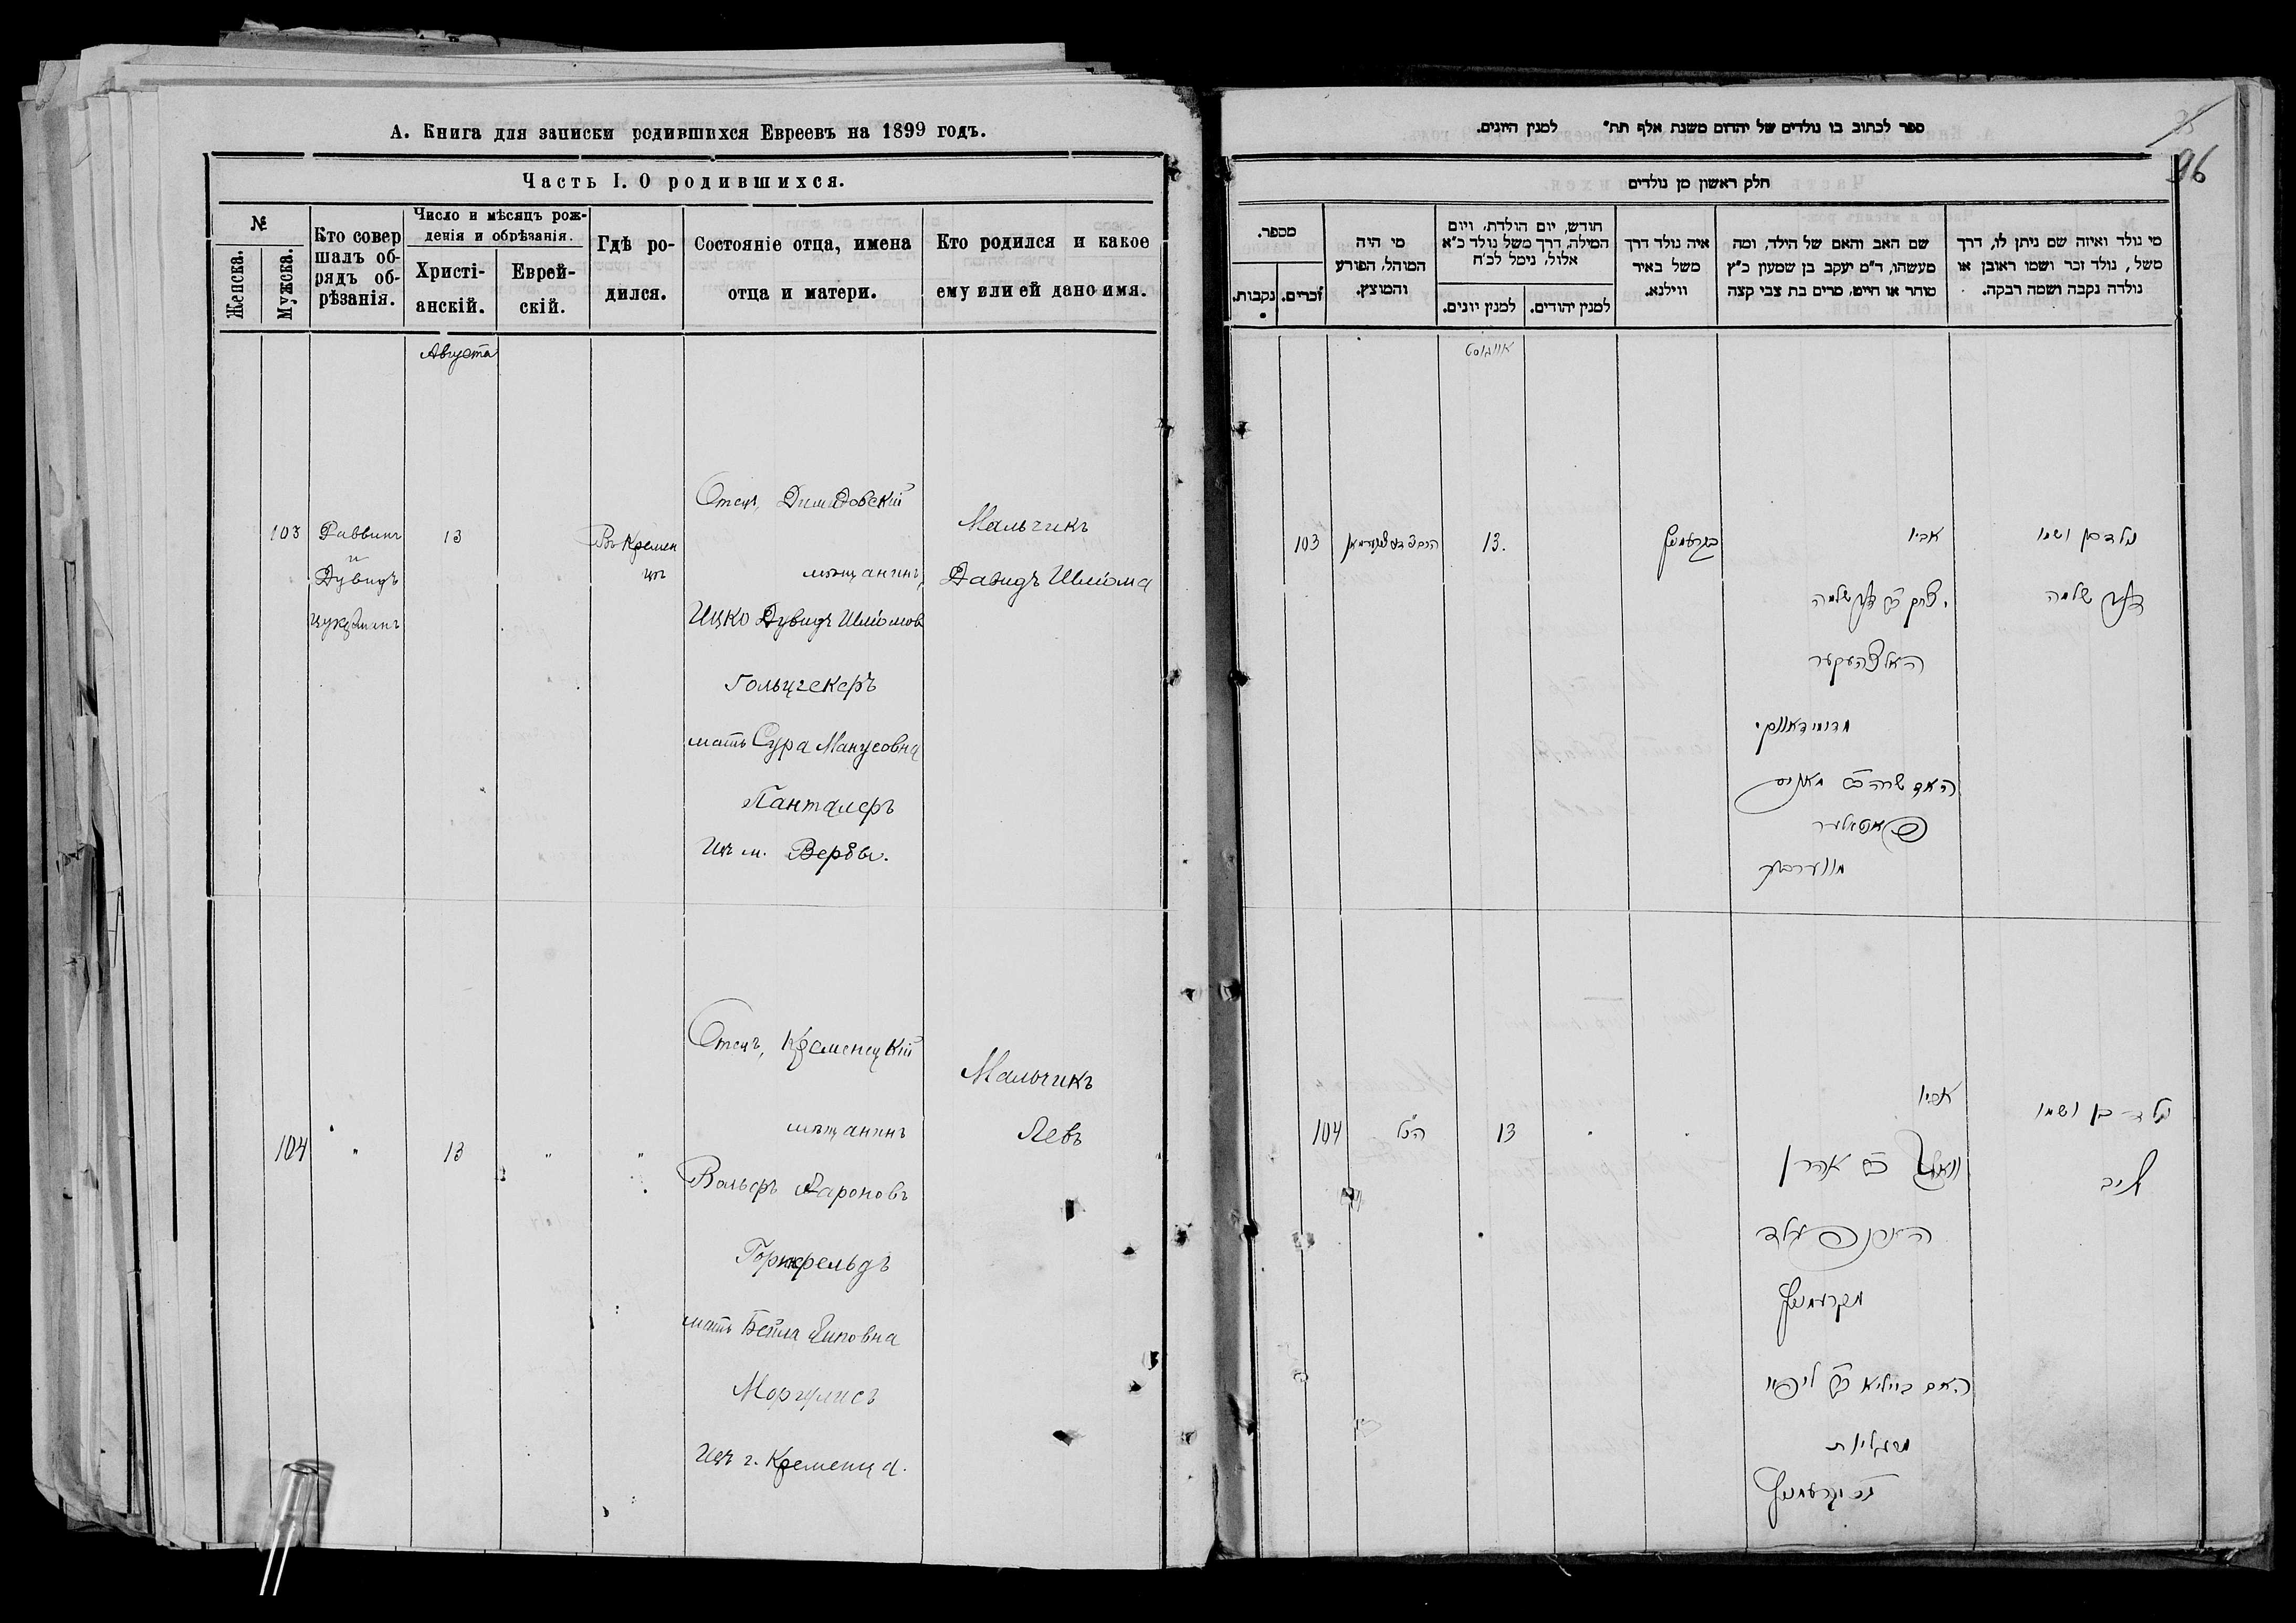 А. Книга для записки родившихся Евреевъ на 1899 годъ.
Часть I. О родившихся.
№
Женска.
Мужска.
Кто совер
шалъ об-
рядъ об-
рѣзанія.
Число и мѣсяцъ рож-
денія и обрѣзанія.
Христі-
анскій.
Еврей-
скій.
Гдѣ ро-
дился.
Состояніе отца, имена
отца и матери.
Кто родился и какое
ему или ей дано имя.
Августа
103
Раввинъ
и
Дувидъ
13
Въ Кремен
цѣ
Отецъ,
мѣщанинъ,
Ицко Дувидъ Шлiомов
Гольцгекеръ
мать Сура Манусовна
Панталеръ
Изъ м. Вербы.
Мальчикъ
Давидъ Шлiома
104
"
13
"
"
Отецъ, Кременецкій
мѣщанинъ
Вольфъ Ароновъ
Горнфельдъ
мать Бейла Липовна
Моргулисъ
Изъ г. Кременца.
Мальчикъ
Левъ
ספר לכתוב בו נולדים של יהדום משנת אלף תת" למנין היונים.
96
חלק ראשון מן נולדים
מספר.
נקבות.
זכרים.
מי היה
המוהל, הפורע
והמוצץ.
חודש, יום הולדת, ויום
המילה, דרך משל נולד כ"א
אלול, נימל לכ'ח
למנין יונים.
למנין יהודים.
איה נולד דרך
משל באיד
ווילנא.
שם האב והאם של הילד, ומה
מעשהו, ד"מ יעקב בן שמעון כ"ץ
סוחר או חייט, מרים בת צבי קצה
מי נולד ואיזה שם ניתן לו, דרך
משל, נולד זכר ושמו ראובן או
נולדה נקבה ושמה רבקה.
אווגוסט
103
13.
בקרעמניץ
אביו
יצחק ב"ר דוד שלמה
האלצהעקער
האם שרה ב"ר מאניס
פאנטאלער
מווערבע
נולד בן ושמו
דוד שלמה
104
הנ"ל
13
אביו
וואלף ב"ר אהרן
הארנפעלד
מקרעמניץ
האם ביילא ב"ר ליפא
מרגליות
מקרעמניץ
נולד בן ושמו
ליב